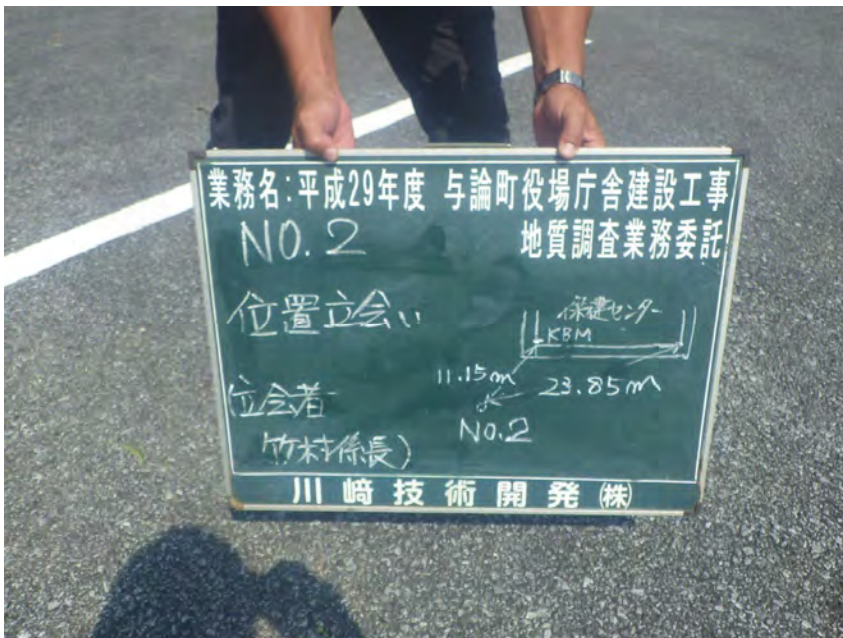 業務名:平成29年度 与論町役場庁舎建設工事
地質調査業務委託
NO.2
位置立会い
保健センター
KBM
11.15m
23.85m
NO.2
位会者
竹村係長)
川﨑技術開発(株)